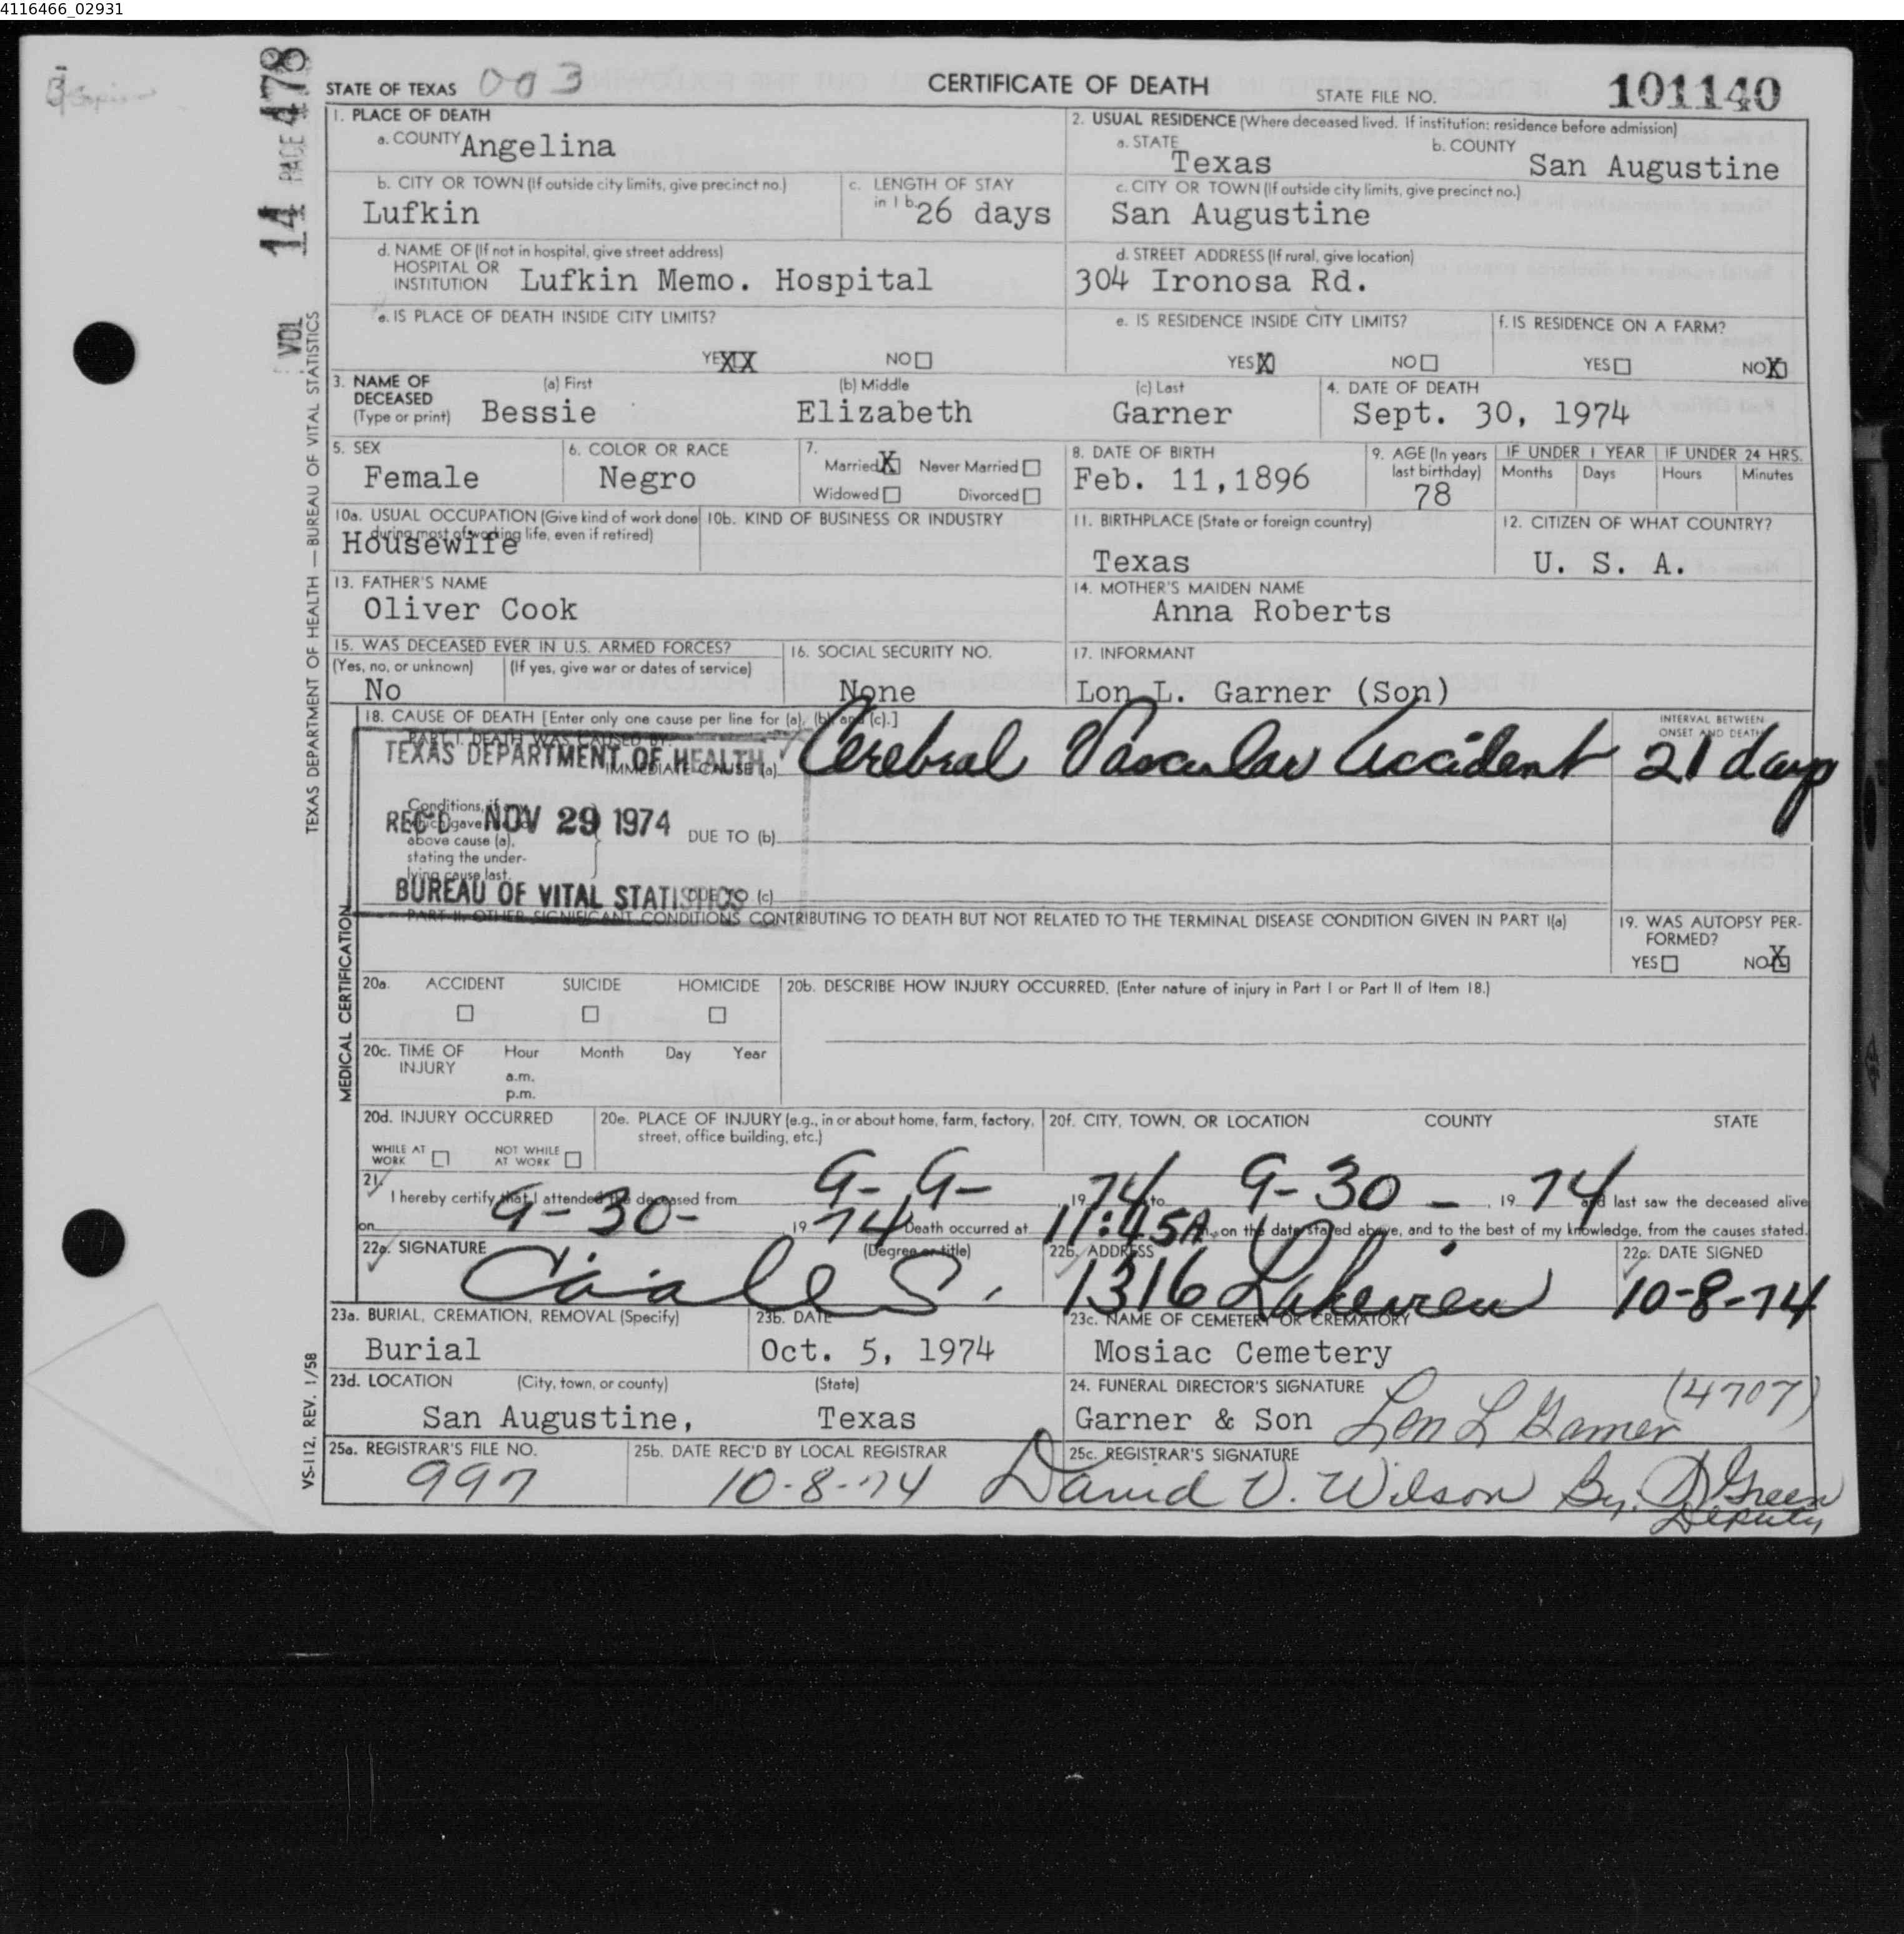 4116466_02931
VOL 14 PAGE 478
STATE OF TEXAS 003 CERTIFICATE OF DEATH STATE FILE NO. 101140
1. PLACE OF DEATH
a. COUNTY Angelina
2. USUAL RESIDENCE (Where deceased lived. If institution: residence before admission)
a. STATE Texas b. COUNTY San Augustine
b. CITY OR TOWN (If outside city limits, give precinct no.) Lufkin
c. LENGTH OF STAY in 1 b. 26 days
c. CITY OR TOWN (If outside city limits, give precinct no.) San Augustine
d. NAME OF (If not in hospital, give street address) HOSPITAL OR INSTITUTION Lufkin Memo. Hospital
d. STREET ADDRESS (If rural, give location) 304 Ironosa Rd.
e. IS PLACE OF DEATH INSIDE CITY LIMITS? YES XX NO
e. IS RESIDENCE INSIDE CITY LIMITS? YES X NO
f. IS RESIDENCE ON A FARM? YES NO X
3. NAME OF DECEASED (Type or print) (a) First Bessie (b) Middle Elizabeth (c) Last Garner
4. DATE OF DEATH Sept. 30, 1974
5. SEX Female
6. COLOR OR RACE Negro
7. Married X Never Married Widowed Divorced
8. DATE OF BIRTH Feb. 11,1896
9. AGE (In years last birthday) 78
IF UNDER 1 YEAR Months Days
IF UNDER 24 HRS. Hours Minutes
10a. USUAL OCCUPATION (Give kind of work done during most of working life, even if retired) Housewife
10b. KIND OF BUSINESS OR INDUSTRY
11. BIRTHPLACE (State or foreign country) Texas
12. CITIZEN OF WHAT COUNTRY? U. S. A.
13. FATHER'S NAME Oliver Cook
14. MOTHER'S MAIDEN NAME Anna Roberts
15. WAS DECEASED EVER IN U.S. ARMED FORCES? (Yes, no, or unknown) No (If yes, give war or dates of service)
16. SOCIAL SECURITY NO. None
17. INFORMANT Lon L. Garner (Son)
18. CAUSE OF DEATH [Enter only one cause per line for (a), (b) and (c).]
PART I. DEATH WAS CAUSED BY:
IMMEDIATE CAUSE (a) Cerebral Vascular Accident
INTERVAL BETWEEN ONSET AND DEATH 21 days
Conditions, if any which gave rise to above cause (a), stating the underlying cause last.
DUE TO (b)
DUE TO (c)
TEXAS DEPARTMENT OF HEALTH
REC'D NOV 29 1974
BUREAU OF VITAL STATISTICS
PART II. OTHER SIGNIFICANT CONDITIONS CONTRIBUTING TO DEATH BUT NOT RELATED TO THE TERMINAL DISEASE CONDITION GIVEN IN PART I(a)
19. WAS AUTOPSY PERFORMED? YES NO X
20a. ACCIDENT SUICIDE HOMICIDE
20b. DESCRIBE HOW INJURY OCCURRED. (Enter nature of injury in Part I or Part II of Item 18.)
20c. TIME OF INJURY Hour Month Day Year
a.m.
p.m.
20d. INJURY OCCURRED WHILE AT WORK NOT WHILE AT WORK
20e. PLACE OF INJURY (e.g., in or about home, farm, factory, street, office building, etc.)
20f. CITY, TOWN, OR LOCATION COUNTY STATE
21. I hereby certify that I attended the deceased from 9-9- 1974 to 9-30- 1974 and last saw the deceased alive
on 9-30- 1974 Death occurred at 11:45A m., on the date stated above, and to the best of my knowledge, from the causes stated.
22a. SIGNATURE (Degree or title)
22b. ADDRESS 1316 Lakeview
22c. DATE SIGNED 10-8-74
23a. BURIAL, CREMATION, REMOVAL (Specify) Burial
23b. DATE Oct. 5, 1974
23c. NAME OF CEMETERY OR CREMATORY Mosiac Cemetery
23d. LOCATION (City, town, or county) (State) San Augustine, Texas
24. FUNERAL DIRECTOR'S SIGNATURE Garner & Son Lon L Garner (4707)
25a. REGISTRAR'S FILE NO. 997
25b. DATE REC'D BY LOCAL REGISTRAR 10-8-74
25c. REGISTRAR'S SIGNATURE David V. Wilson By. D Green Deputy
TEXAS DEPARTMENT OF HEALTH — BUREAU OF VITAL STATISTICS
MEDICAL CERTIFICATION
VS-112, REV. 1/58